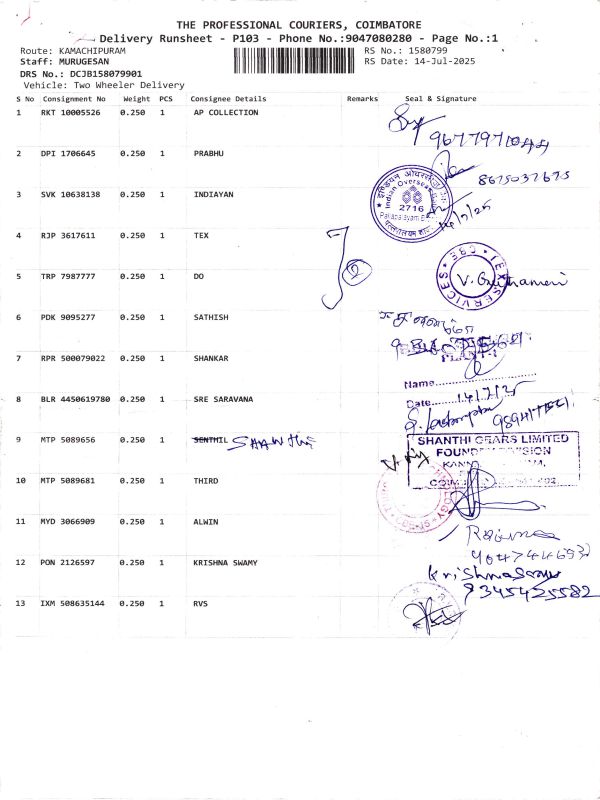 THE PROFESSIONAL COURIERS, COIMBATORE
Delivery Runsheet - P103 - Phone No.:9047080280 - Page No.:1
Route: KAMACHIPURAM
RS No.: 1580799
Staff: MURUGESAN
RS Date: 14-Jul-2025
DRS No.: DCJB158079901
Vehicle: Two Wheeler Delivery
S No Consignment No Weight PCS Consignee Details Remarks Seal & Signature
1 RKT 10005526 0.250 1 AP COLLECTION
2 DPI 1706645 0.250 1 PRABHU
8675037675
3 SVK 10638138 0.250 1 INDIAYAN
Indian Overseas
2716
4 RJP 3617611 0.250 1 TEX
2
5 TRP 7987777 0.250 1 DO
TEX SERVICES CBE
6 PDK 9095277 0.250 1 SATHISH
7 RPR 500079022 0.250 1 SHANKAR
PLANT-1
Name
8 BLR 4450619780 0.250 1 SRE SARAVANA
Date 14/7/25
9 MTP 5089656 0.250 1 SENTHIL SHANTHI
SHANTHI GEARS LIMITED
FOUNDRY DIVISION
10 MTP 5089681 0.250 1 THIRD
11 MYD 3066909 0.250 1 ALWIN
12 PON 2126597 0.250 1 KRISHNA SWAMY
Krishnaswamy
9345425582
13 IXM 508635144 0.250 1 RVS